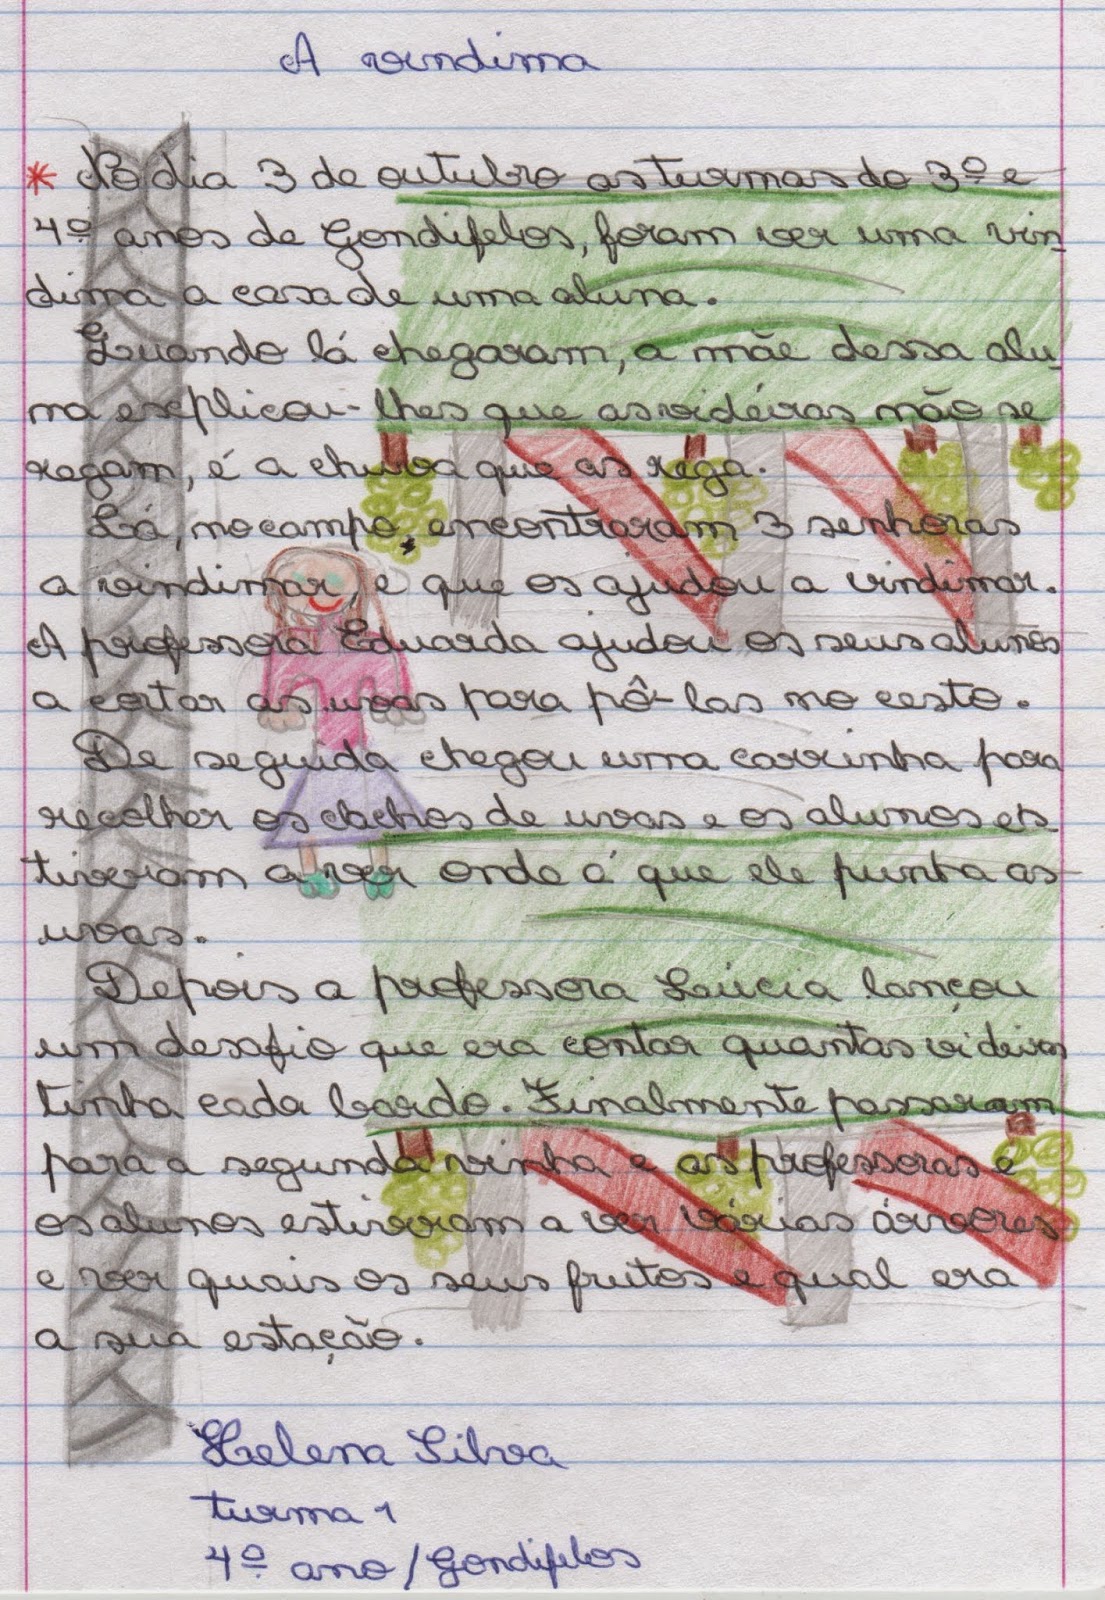 A vindima
* No dia 3 de outubro as turmas do 3º e
4º anos de Gondifelos, foram ver uma vin-
dima a casa de uma aluna.
Quando lá chegaram, a mãe dessa alu-
na explicou-lhes que as vidéiras não se
regam, é a chuva que as rega.
Lá, no campo, encontraram 3 senhoras
a vindimar, e que os ajudou a vindimar.
A professora Eduarda ajudou os seus alunos
a cortar as uvas para pô-las no cesto.
De seguida chegou uma carrinha para
recolher os cachos de uvas e os alunos es-
tiveram a ver onde é que ele punha as
uvas.
Depois a professora Lúcia lançou
um desafio que era contar quantas videiras
tinha cada bardo. Finalmente passaram
para a segunda vinha e as professoras e
os alunos estiveram a ver várias árvores
e ver quais os seus frutos e qual era
a sua estação.
Helena Silva
turma 1
4º ano/Gondifelos